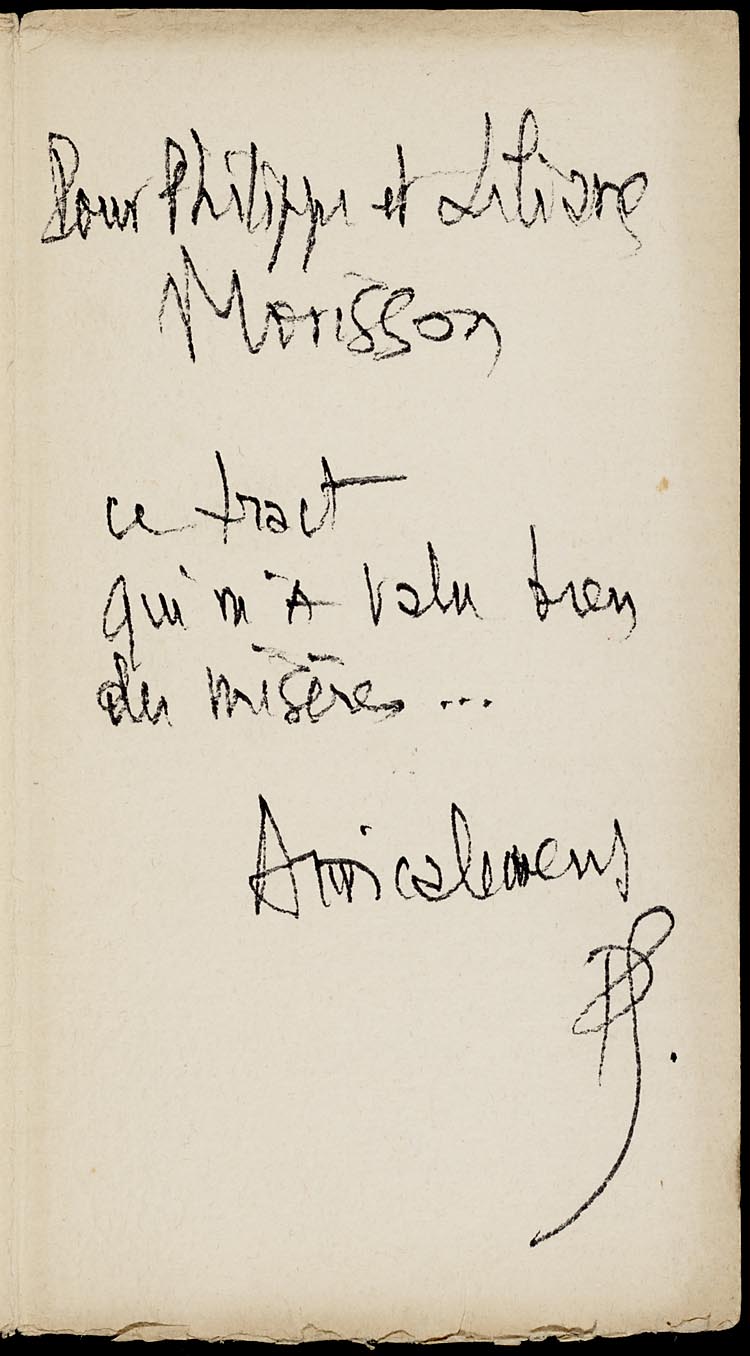 Pour Philippe et Liliane
Morisson
ce tract
qui m'A valu bien
des misères...
Amicalement